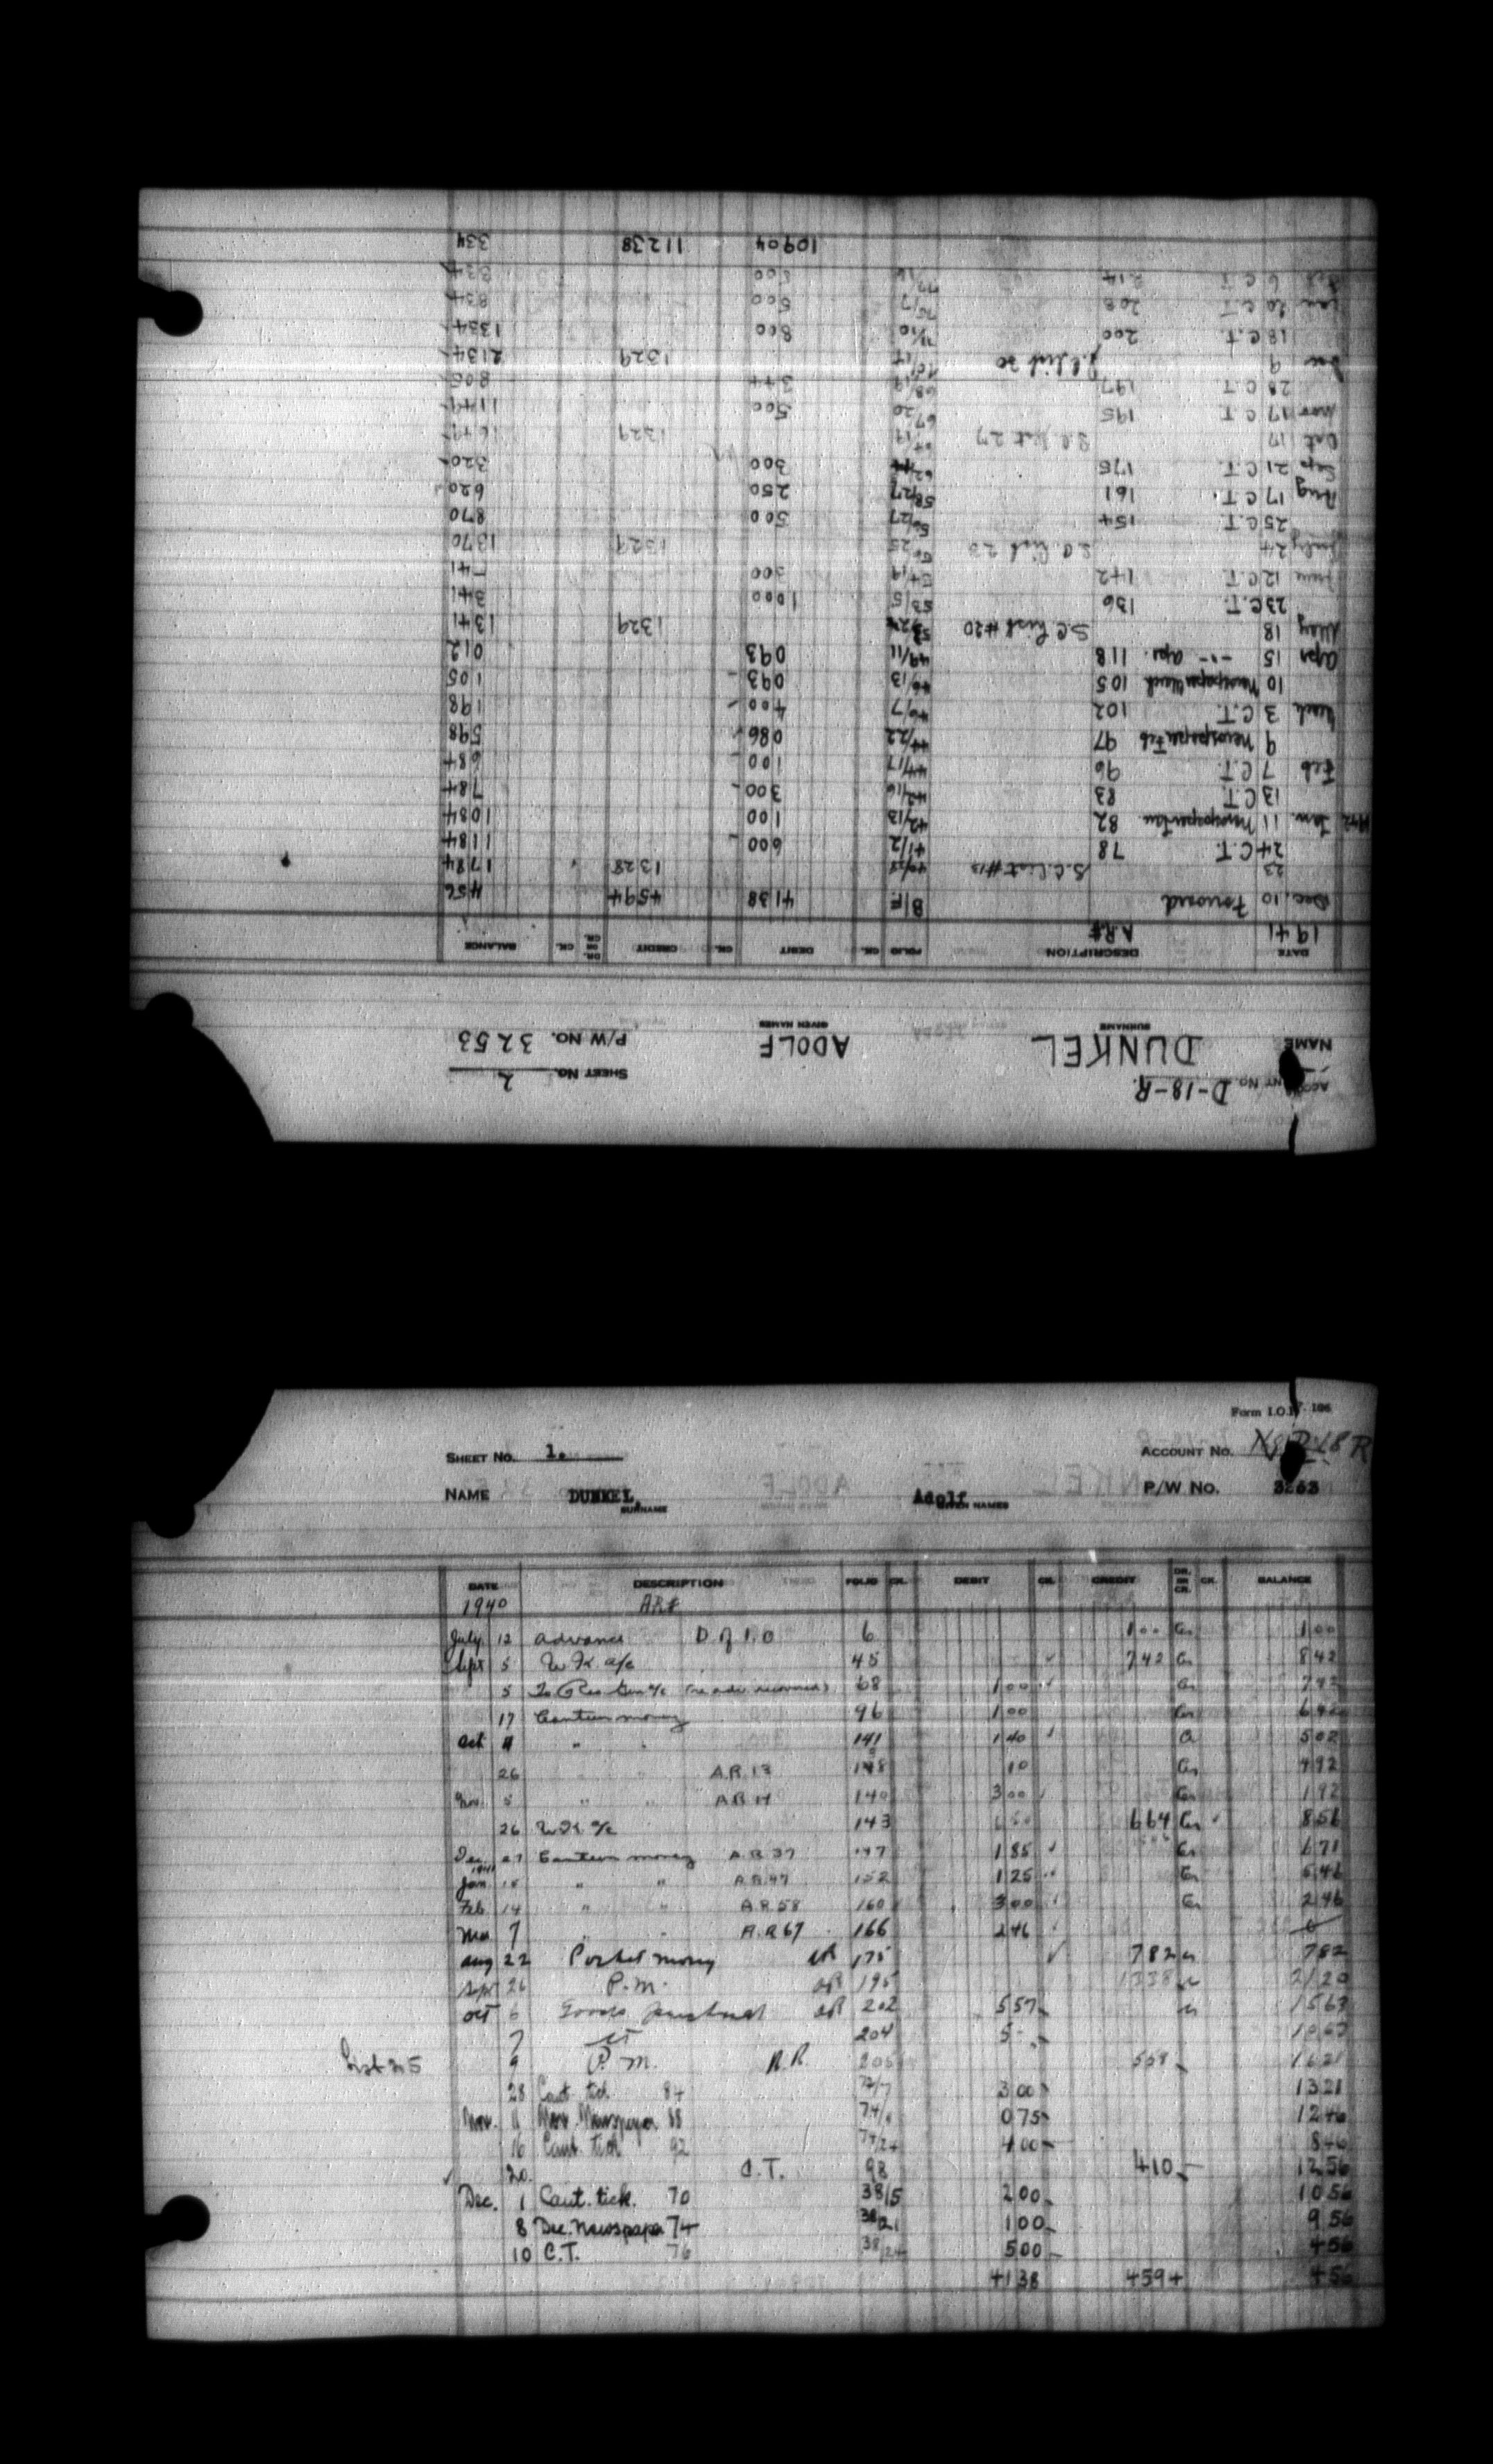 ACCOUNT NO. D-18-R. SHEET NO. 2
NAME DUNKEL ADOLF P/W NO. 3253
SURNAME GIVEN NAMES
DATE DESCRIPTION FOLIO CR. DEBIT CR. CREDIT DR. OR CR. CR. BALANCE
1941 AR#
Dec. 10 Forward B/F 41 38 45 94 4 56
23 S.C. List #15 13 28 17 84
24 C.T. 78 41/2 6 00 11 84
1942 Jan. 11 Newspaper Jan 82 42/13 1 00 10 84
13 C.T. 83 42/16 3 00 7 84
Feb 7 C.T. 96 44/17 1 00 6 84
9 Newspaper Feb 97 44/22 0 86 5 98
March 3 C.T. 102 46/7 4 00 1 98
10 Newspaper March 105 46/13 0 93 1 05
Apr 15 -"- Apr. 118 49/11 0 93 0 12
May 18 S.C. List #20 13 29 13 41
23 C.T. 136 53/5 10 00 3 41
June 12 C.T. 142 54/19 3 00 - 41
July 24 S.C. List 23 25 13 29 13 70
25 C.T. 154 56/27 5 00 8 70
Aug 17 C.T. 161 58/27 2 50 6 20
Sep 21 C.T. 175 3 00 3 20
Oct 17 S.C. List 27 13 29 16 49
Nov 17 C.T. 195 67/20 5 00 11 49
28 C.T. 197 68/19 3 44 8 05
Dec 9 S.C. List 30 13 29 21 34
18 C.T. 200 71/10 8 00 13 34
Jan 20 C.T. 208 75/7 5 00 8 34
Feb 6 C.T. 214 77/16 5 00 3 34
109 04 112 38 3 34
Form I.O.
SHEET NO. 1. ACCOUNT NO. 18 R
NAME DUNKEL, Adolf P/W NO.
SURNAME GIVEN NAMES
DATE DESCRIPTION FOLIO CR. DEBIT CR. CREDIT DR. OR CR. CR. BALANCE
1940 AR#
July 12 Advance D of I.O 6 1 00 Cr 1 00
Sept 5 W Fk a/c 45 7 42 Cr 8 42
5 68 1 00 Cr 7 42
17 Canteen money 96 1 00 Cr 6 42
Oct " " 141 1 40 Cr 5 02
26 " " A.R. 13 10 Cr 4 92
Nov. 5 " " A.R. 14 140 3 00 Cr 1 92
26 W Fk a/c 143 6 64 Cr 8 56
Dec 27 Canteen money A.R. 37 1 85 Cr 6 71
1941
Jan 15 " " A.R. 47 152 1 25 Cr 5 46
Feb 14 " " A.R. 58 160 3 00 Cr 2 46
Mar 7 " " A.R. 67 166 2 46 0
Aug 22 Pocket money AR 175 7 82 Cr 7 82
Sep 26 P.M. AR 195 13 38 21 20
Oct 6 Goods purchased AR 202 5 57 15 63
7 CT 204 5 - 10 63
List 25 9 P.M. A.R. 205 5 58 16 21
28 Cant. tick. 84 3 00 13 21
Nov. 11 Nov. Newspaper 88 0 75 12 46
16 Cant. tick 92 4 00 8 46
20. C.T. 98 4 10 12 56
Dec. 1 Cant. tick. 70 38/5 2 00 10 56
8 Dec. Newspaper 74 38/21 1 00 9 56
10 C.T. 76 38/24 5 00 4 56
41 38 45 94 4 56